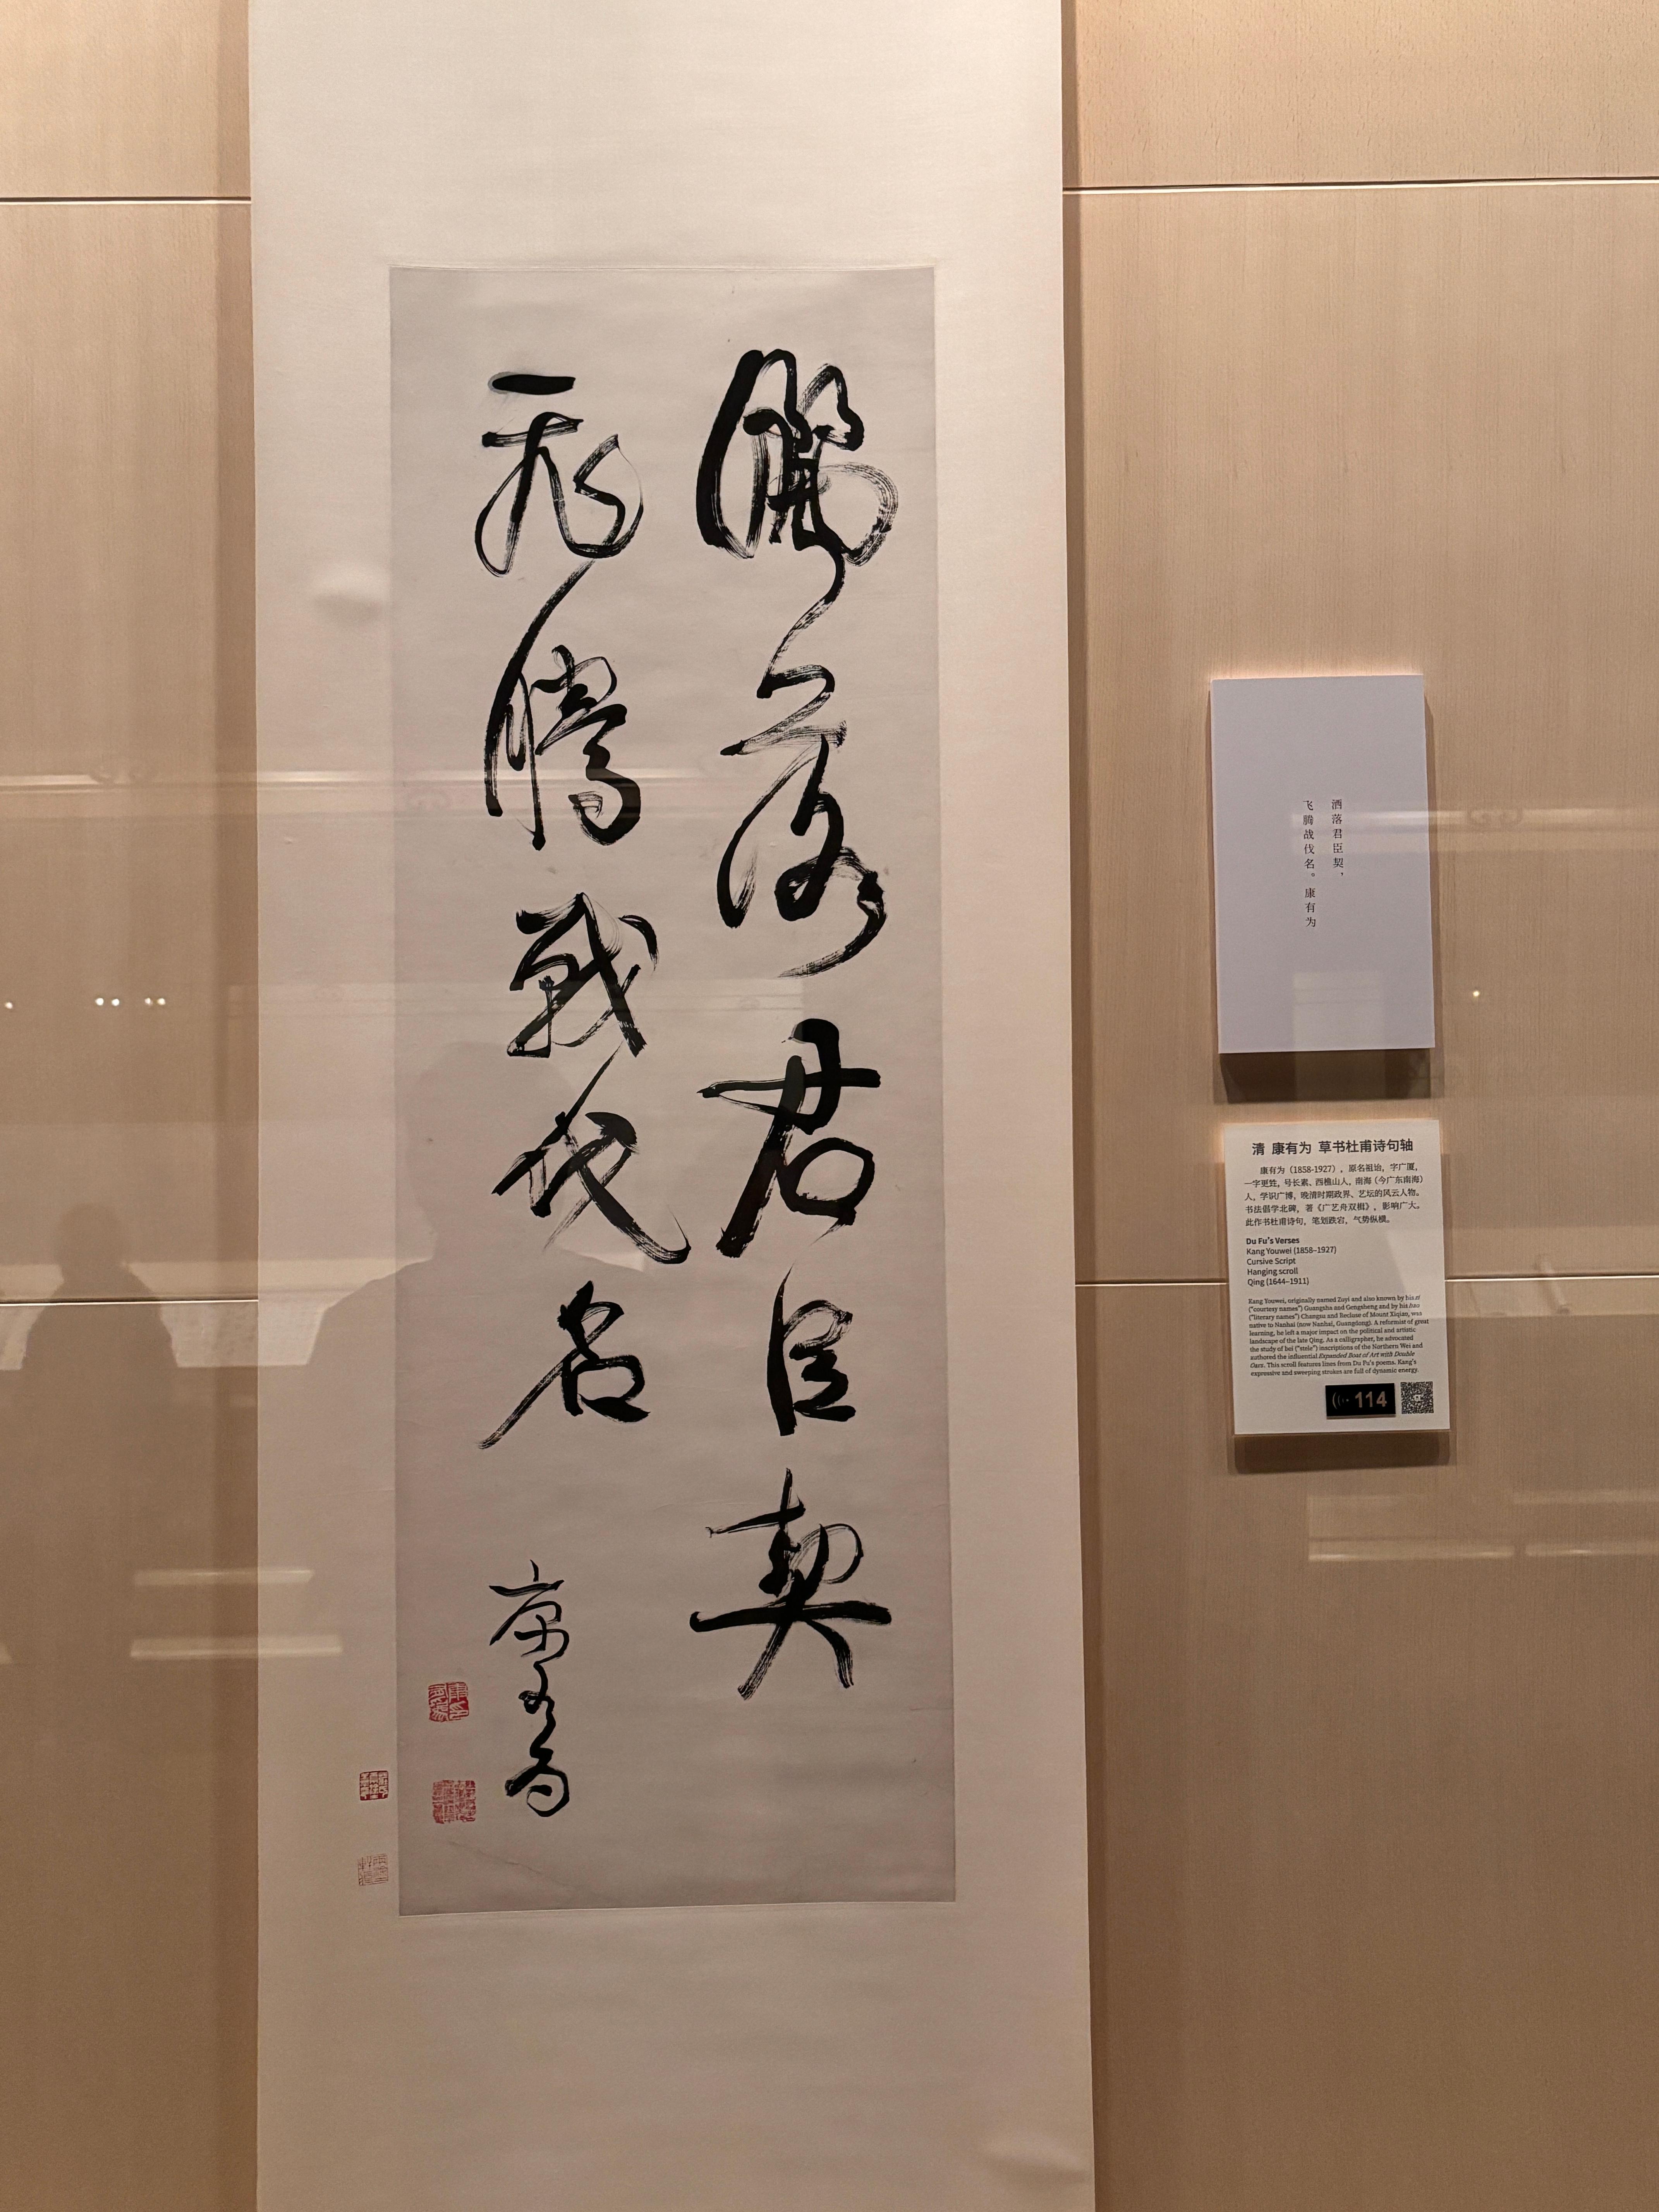 灑落君臣契
飛騰戰伐名
康有為
洒落君臣契，
飞腾战伐名。康有为
清 康有为 草书杜甫诗句轴
康有为（1858-1927），原名祖诒，字广厦，
一字更甡，号长素、西樵山人，南海（今广东南海）
人，学识广博，晚清时期政界、艺坛的风云人物。
书法倡学北碑，著《广艺舟双楫》，影响广大。
此作书杜甫诗句，笔划跌宕，气势纵横。
Du Fu's Verses
Kang Youwei (1858–1927)
Cursive Script
Hanging scroll
Qing (1644–1911)
Kang Youwei, originally named Zuyi and also known by his zi
("courtesy names") Guangsha and Gengsheng and by his hao
("literary names") Changsu and Recluse of Mount Xiqiao, was
native to Nanhai (now Nanhai, Guangdong). A reformist of great
learning, he left a major impact on the political and artistic
landscape of the late Qing. As a calligrapher, he advocated
the study of bei ("stele") inscriptions of the Northern Wei and
authored the influential Expanded Boat of Art with Double
Oars. This scroll features lines from Du Fu's poems. Kang's
expressive and sweeping strokes are full of dynamic energy.
114